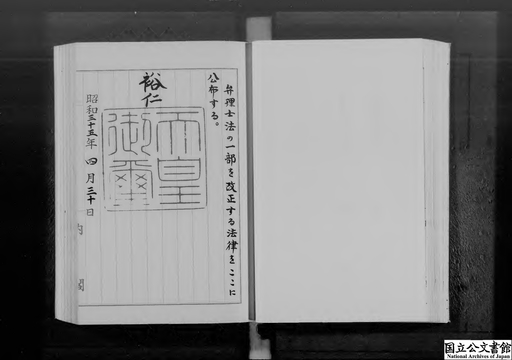 弁理士法の一部を改正する法律をここに
公布する。
裕仁
天皇
御璽
昭和三十五年四月三十日
内閣
国立公文書館
National Archives of Japan